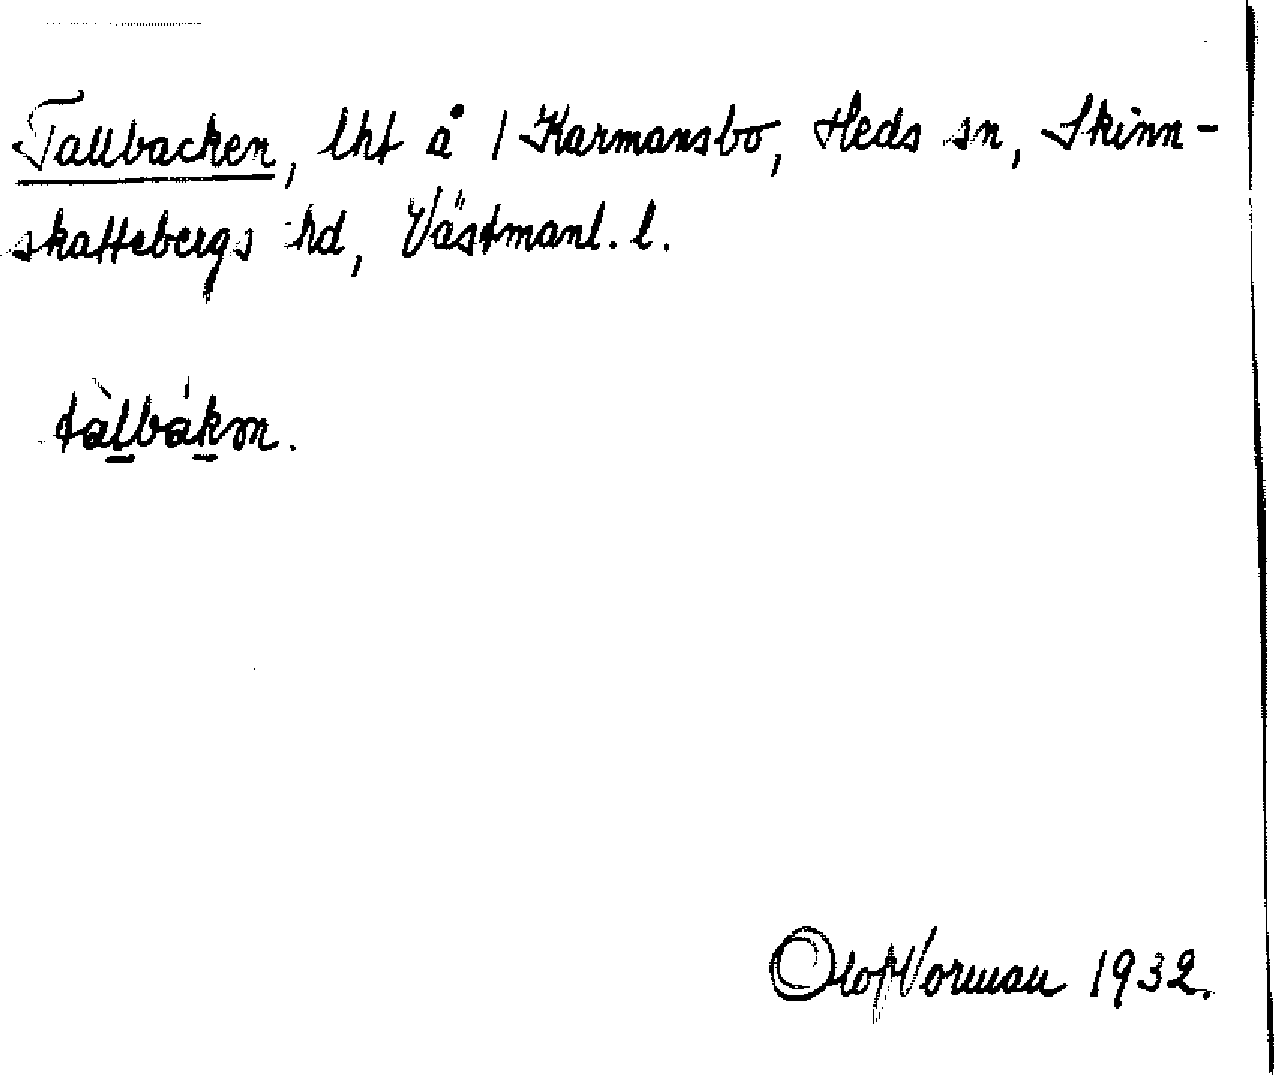 Tallbacken, lht å 1 Karmansbo, Heds sn, Skinn-
skattebergs hd, Västmanl. l.
tàlbákm.
Olof Norman 1932.